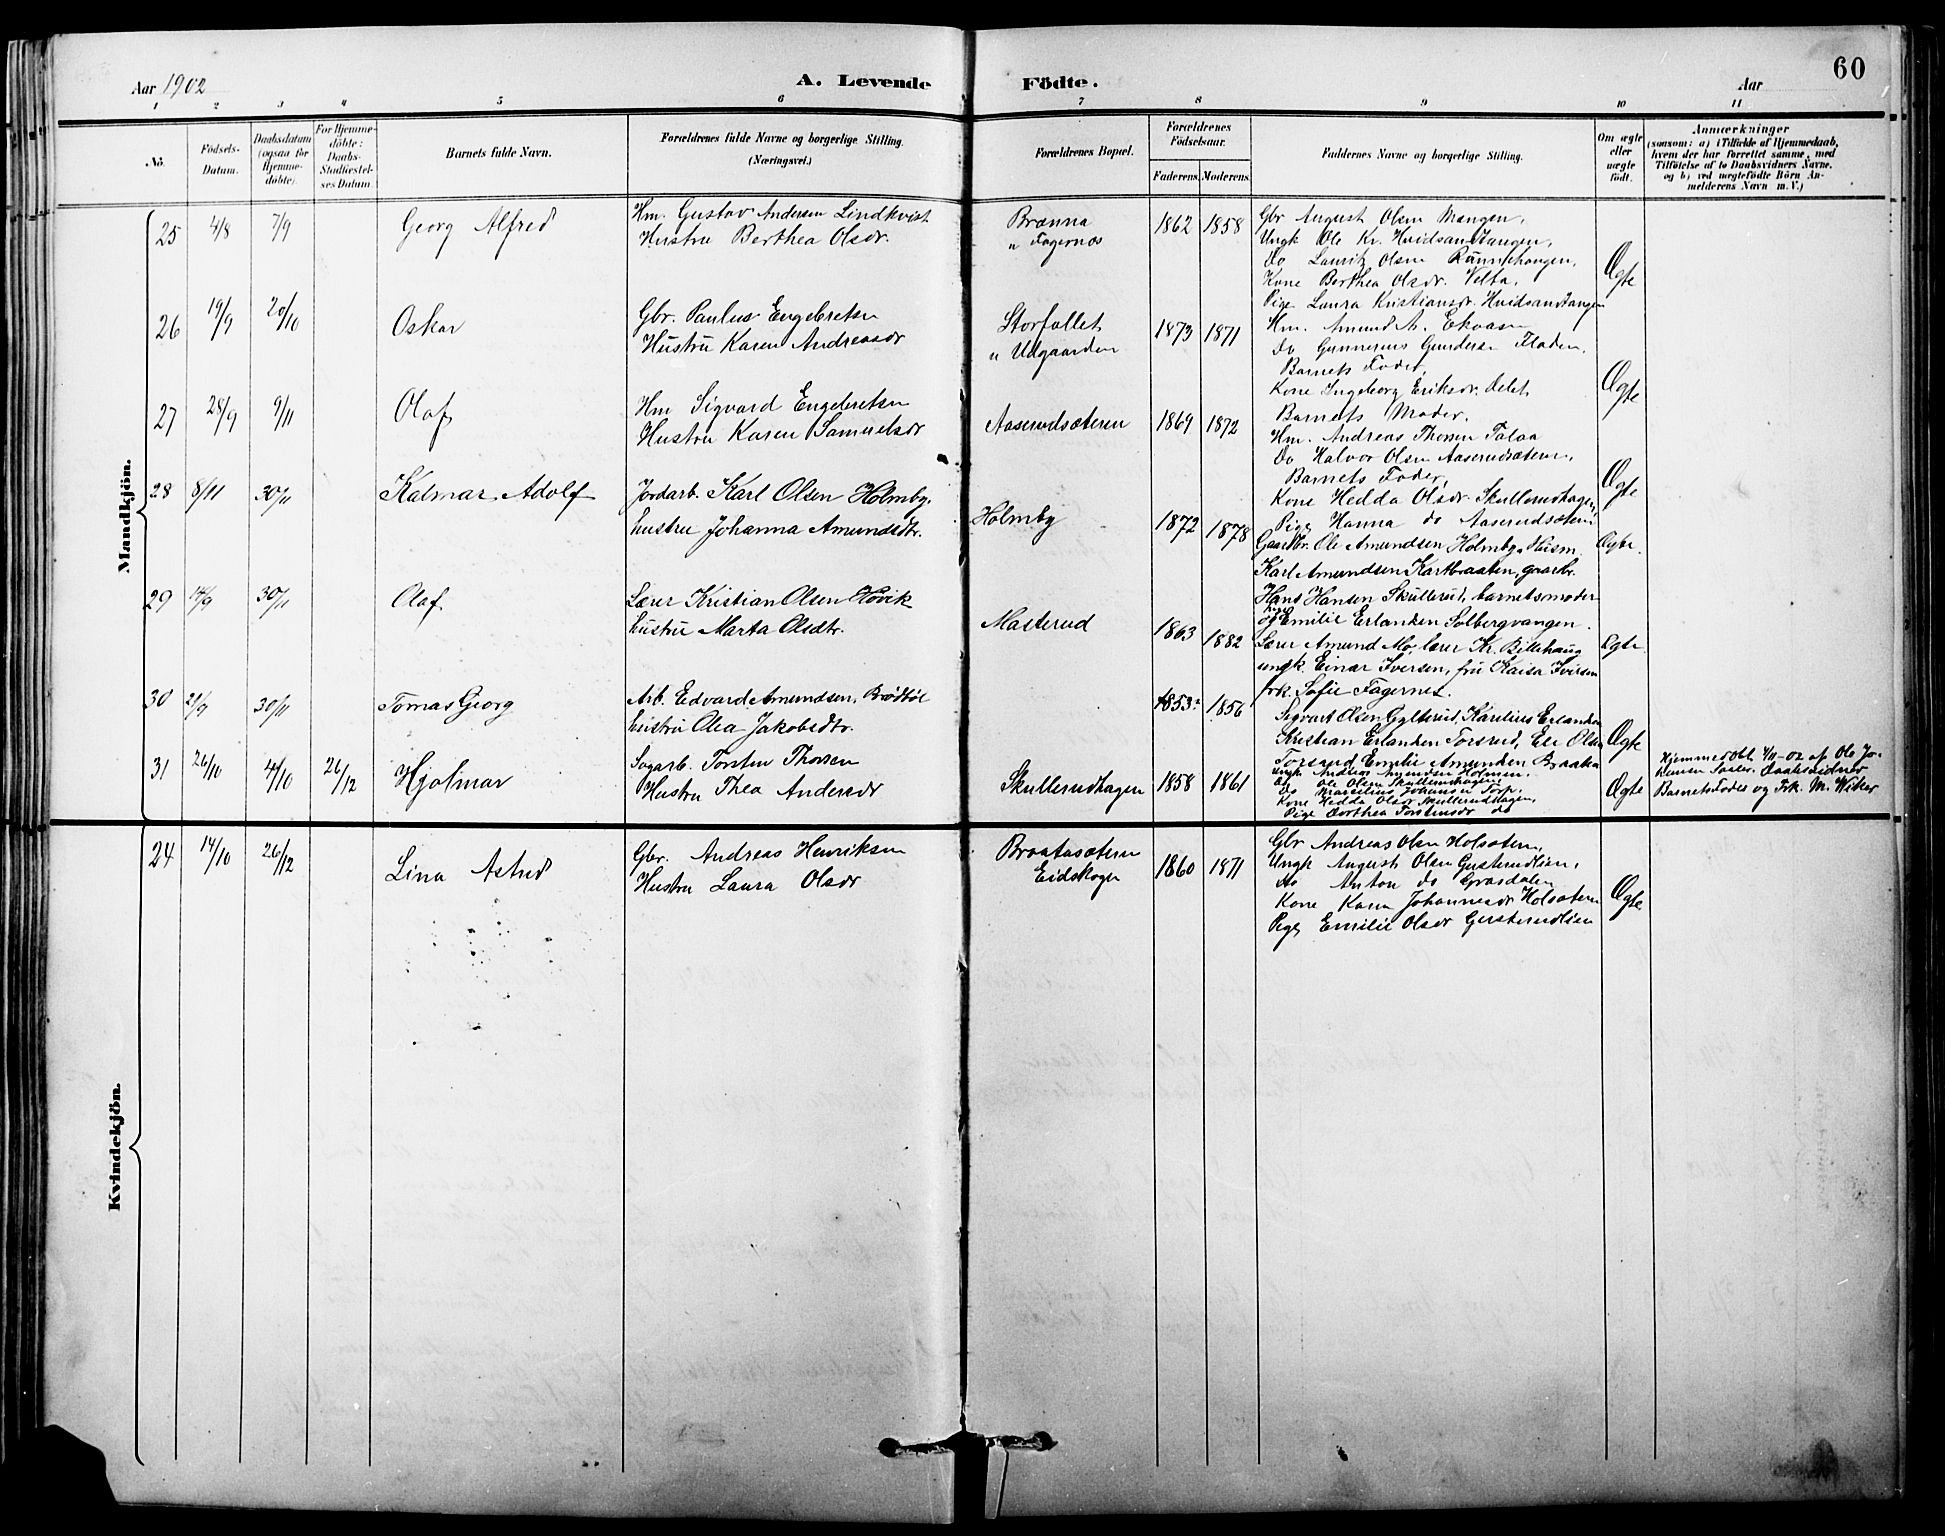 Aar 1902
A. Levende Födte.
Aar
60
1 2 3 4 5 6 7 8 9 10 11
No.
Födsels-Datum.
Daabsdatum (ogsaa for Hjemme-döbte).
For Hjemme-döbte: Daabs-Stadfæstel-ses Datum.
Barnets fulde Navn.
Forældrenes fulde Navne og borgerlige Stilling.
(Næringsvei.)
Forældrenes Bopæl.
Forældrenes Födselsaar.
Faderens. Moderens.
Faddernes Navne og borgerlige Stilling.
Om ægte eller uægte födt.
Anmærkninger
(saasom: a) i Tilfælde af Hjemmedaab,
hvem der har forrettet samme, med
Tilföielse af to Daabsvidners Navne,
og b) ved uægtefödte Börn An-
melderens Navn m. V.)
Mandkjön.
25 4/8 7/9 Georg Alfred
Hm. Gustav Andersen Lindkvist
Hustru Berthea Olsdr.
Brænna
u Fagernæs
1862 1858
Gbr August Olsen Mangen,
Ungk Ole Kr. Hvidsandtangen,
Do Lauritz Olsen
Kone Berthea Olsdr. Velta,
Pige Laura Kristiansdr. Hvidsandtangen
Ægte
26 19/9 20/10 Oskar
Gbr. Paulus Engebretsen
Hustru Karen Andreasdr
Storfallet
u Udgaarden
1873 1871
Hm. Amund A. Ekaasen
Do Gunnerius Gundersen Floden,
Barnets Fader,
Kone Ingeborg Eriksdr.
Barnets Moder.
Ægte
27 28/9 9/11 Olaf
Hm Sigvard Engebretsen
Hustru Karen Samuelsdr
Aaserudsæteren
1869 1872
Hm. Andreas Thorsen
Do Halvor Olsen Aaserudsæteren,
Barnets Fader,
Kone Hedda Olsdr. Skullerudhagen,
Pige Hanna do Aaserudsæteren
Ægte
28 8/11 30/11 Kalmar Adolf
Jordarb. Karl Olsen Holmby,
hustru Johanna Amundsdtr.
Holmby
1872 1878
Gaardbr. Ole Amundsen Holmby, Husm.
Karl Amundsen Kartbraaten, gaardbr.
Hans Hansen Skullerud, barnets moder
og Emilie Erlandsen Solbergvangen.
Ægte.
29 14/9 30/11 Olaf.
Lærer Kristian Olsen Hovik
hustru Marta Olsdtr.
Masterud
1863 1882
Lærer Amund Mo, lærer Kr. Billehaug
ungk. Einar Iversen, fru Kaisa Iversen
frk. Sofie Fagernes.
Ægte
30 21/9 30/11 Tomas Georg
Arb. Edvard Amundsen, Brødbøl
hustru Olea Jakobsdtr.
1853 1856
Sigvart Olsen Gylterud, Karelius Erlandsen
Kristian Erlandsen Torsrud, Eli Olsen
Torsrud, Emilie Amundsen Braaka
Ægte
31 26/10 4/10 26/12 Hjalmar
Sagarb. Torsten Thorsen
Hustru Thea Andersdr
Skullerudhagen
1858 1861
Ungk Andreas Amundsen Holmen,
Do Ole Olsen Skullerudhagen,
Do Marselius Johansen Torp,
Kone Hedda Olsdr Skullerudhagen,
Pige Dorthea Torstensdr do
Ægte
Hjemmedöbt 4/11-02 af Ole Jo-
hansen Daabsvidner
Barnets Fader og Frk. M.
Kvindekjön.
24 14/10 26/12 Lina Astrid
Gbr. Andreas Henriksen
Hustru Laura Olsdr
Braatasæteren
Eidskogen
1860 1871
Gbr Andreas Olsen Holsæteren,
Ungk August Olsen Gusterudlien,
Do Anton do Grasdalen
Kone Karen Johannesdr Holsæteren
Pige Emilie Olsdr Gusterudlien
Ægte